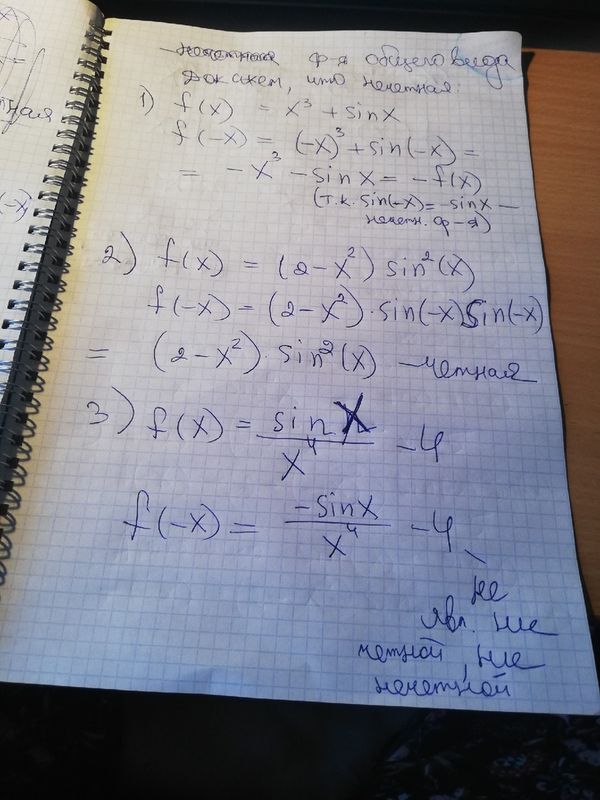 ф-я общего вида
Докажем, что нечетная:
1) f(x) = x³ + sinx
f(-x) = (-x)³ + sin(-x) =
= -x³ - sinx = -f(x)
(т.к. sin(-x) = -sinx —
нечетн. ф-я)
2) f(x) = (2-x²) sin²(x)
f(-x) = (2-x²)·sin(-x)sin(-x)
= (2-x²)·sin²(x) — четная
3) f(x) = sin x / x⁴ - 4
f(-x) = -sinx / x⁴ - 4
не
явл. ни
четной, ни
нечетной
ная
(-x)